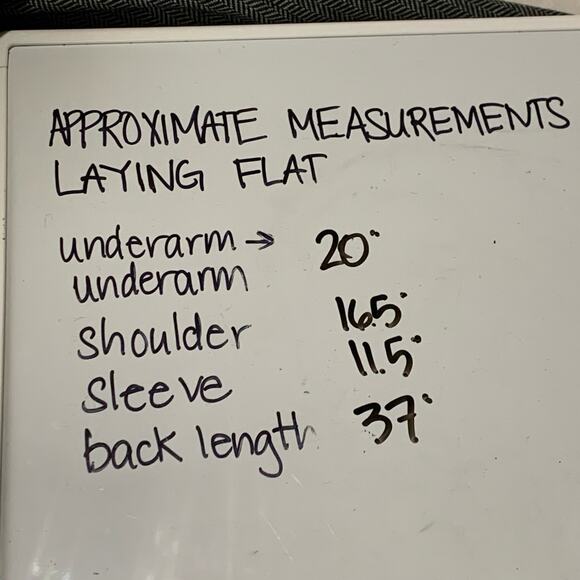 APPROXIMATE MEASUREMENTS
LAYING FLAT
underarm → 20"
underarm
shoulder 16.5"
sleeve 11.5"
back length 37"